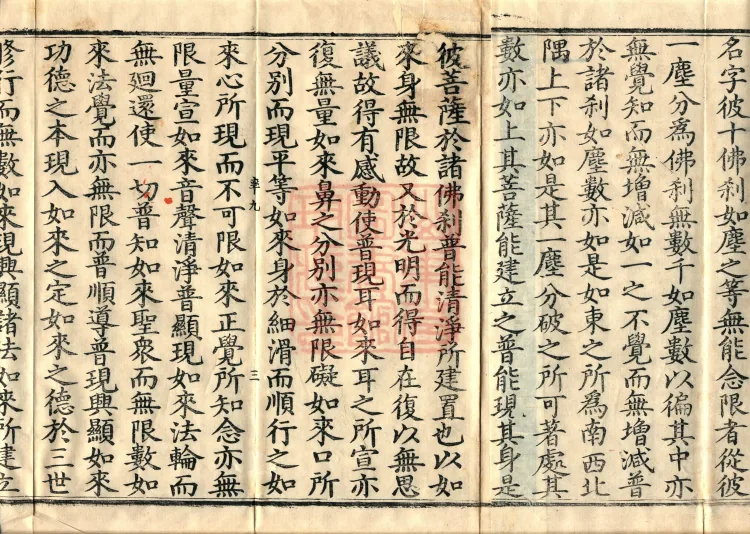 名字彼十佛刹如塵之等無能念限者從彼
一塵分爲佛刹無數千如塵數以徧其中亦
無覺知而無增減如一之不覺而無增減普
於諸刹如塵數亦如是如東之所爲南西北
隅上下亦如是其一塵分破之所可著處其
數亦如上其菩薩能建立之普能現其身是
彼菩薩於諸佛刹普能清淨所建置也以如
來身無限故又於光明而得自在復以無思
議故得有感動使普現耳如來耳之所宣亦
復無量如來鼻之分別亦無限礙如來口所
分別而現平等如來身於細滑而順行之如
率九 三
來心所現而不可限如來正覺所知念亦無
限量宣如來音聲清淨普顯現如來法輪而
無廻還使一切普知如來聖衆而無限數如
來法覺而亦無限而普順導普現興顯如來
功德之本現入如來之定如來之德於三世
修行而無數如來現興顯諸法如來所建立